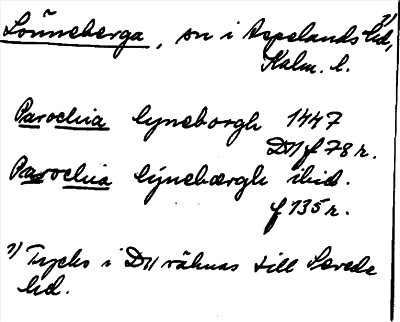 Lönneberga, sn i Aspelands hd,¹⁾
Kalm. l.
Parochia lyneborgh 1447
D11 f 78 r.
Parochia lýnebærgh ibid.
f 135 r.
¹⁾ Tycks i D11 räknas till Sevede
hd.